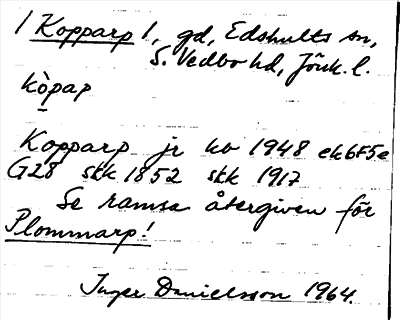 1 Kopparp 1, gd, Edshults sn,
S. Vedbo hd, Jönk. l.
kòpap
Kopparp jr kb 1948 ek6F5e
G28 skk 1852 skk 1917
Se ramsa återgiven för
Plommarp!
Inger Danielsson 1964.